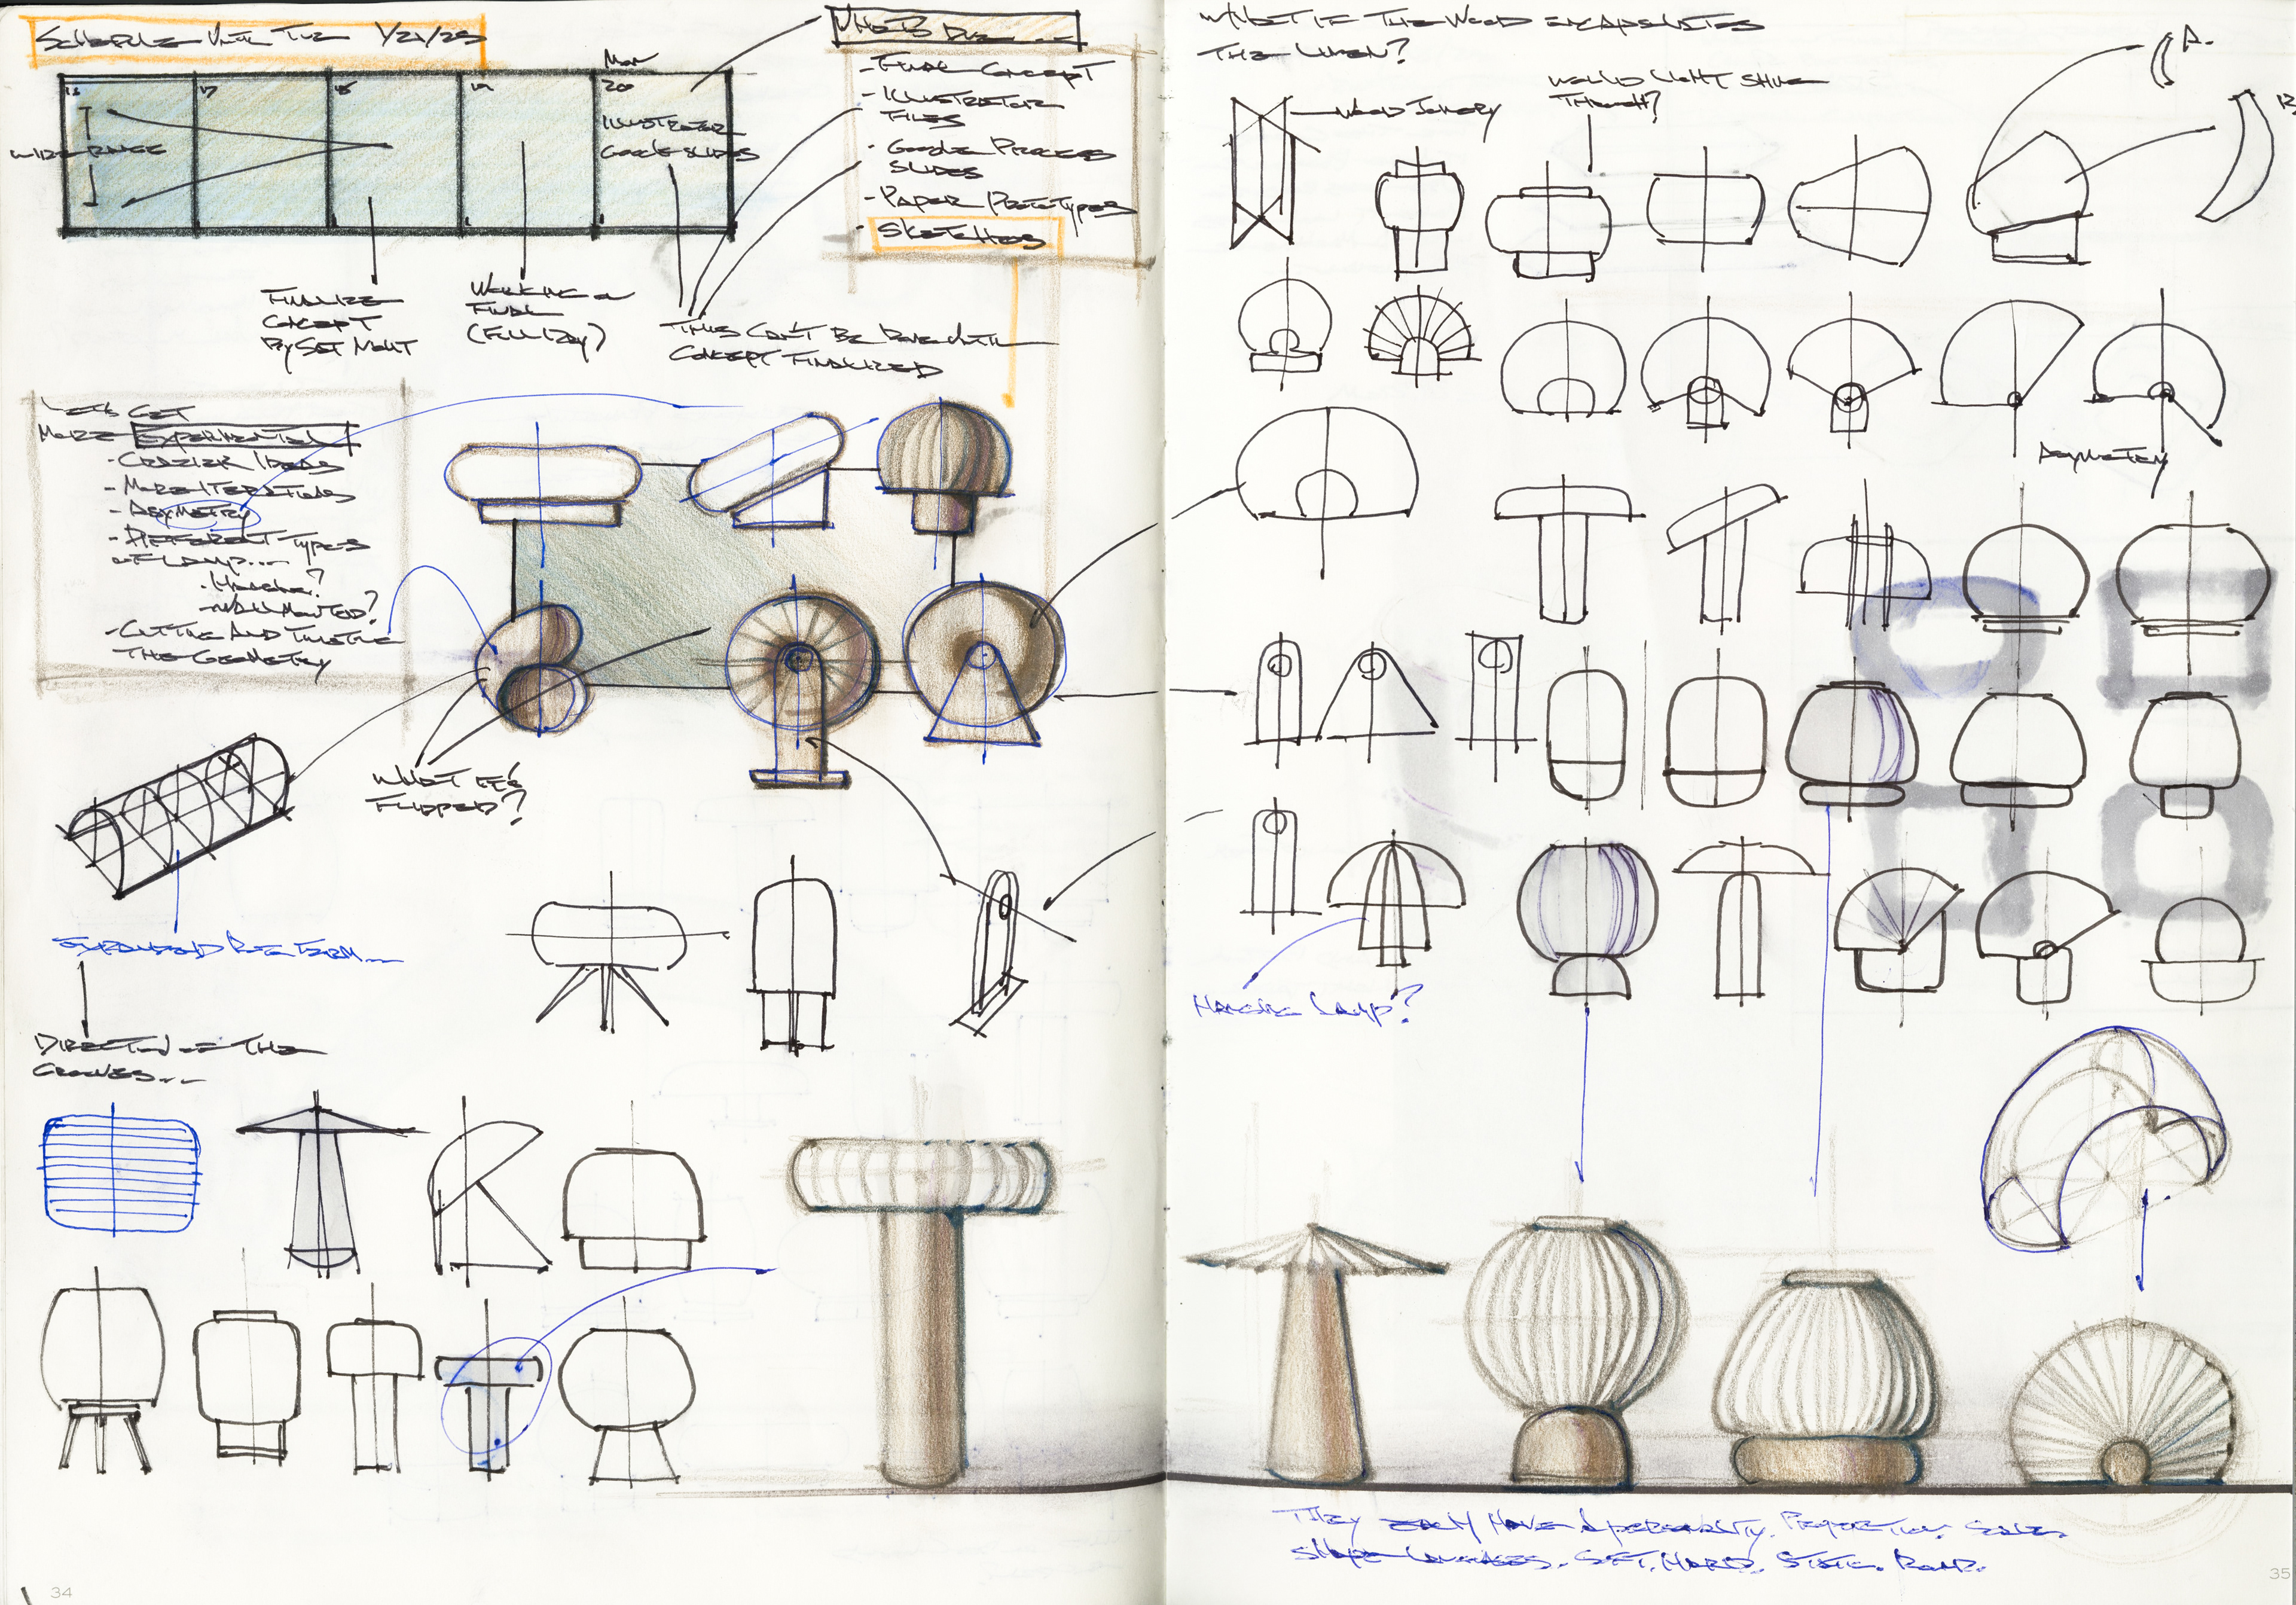 Schedule Until Tue 1/21/25
16 17 18 19 Mon 20
Wide Range
Illustrator
Google Slides
Finalize
Concept
By Sat Night
Working on
Final
(Full Day)
This Can't Be Done Until
Concept Finalized
What's Due....
- Final Concept
- Illustrator
Files
- Google Process
Slides
- Paper Prototypes
- Sketches
Let's Get
More Experimental
- Crazier Ideas
- More Iterations
- Asymmetry
- Different Types
of Lamp...
- Hanging?
- Wall Mounted?
- Cutting and Twisting
The Geometry
What if it's
Flipped?
Expanded Form...
Direction of the
Grooves...
34
What if the Wood Encapsulates
The Lumen?
Wood Joinery
Would Light Shine
Through?
A.
B
Asymmetry
Hanging Lamp?
They Each Have A Personality. Proportion. Scale.
Shape Languages. Soft. Hard. Static. Round.
35